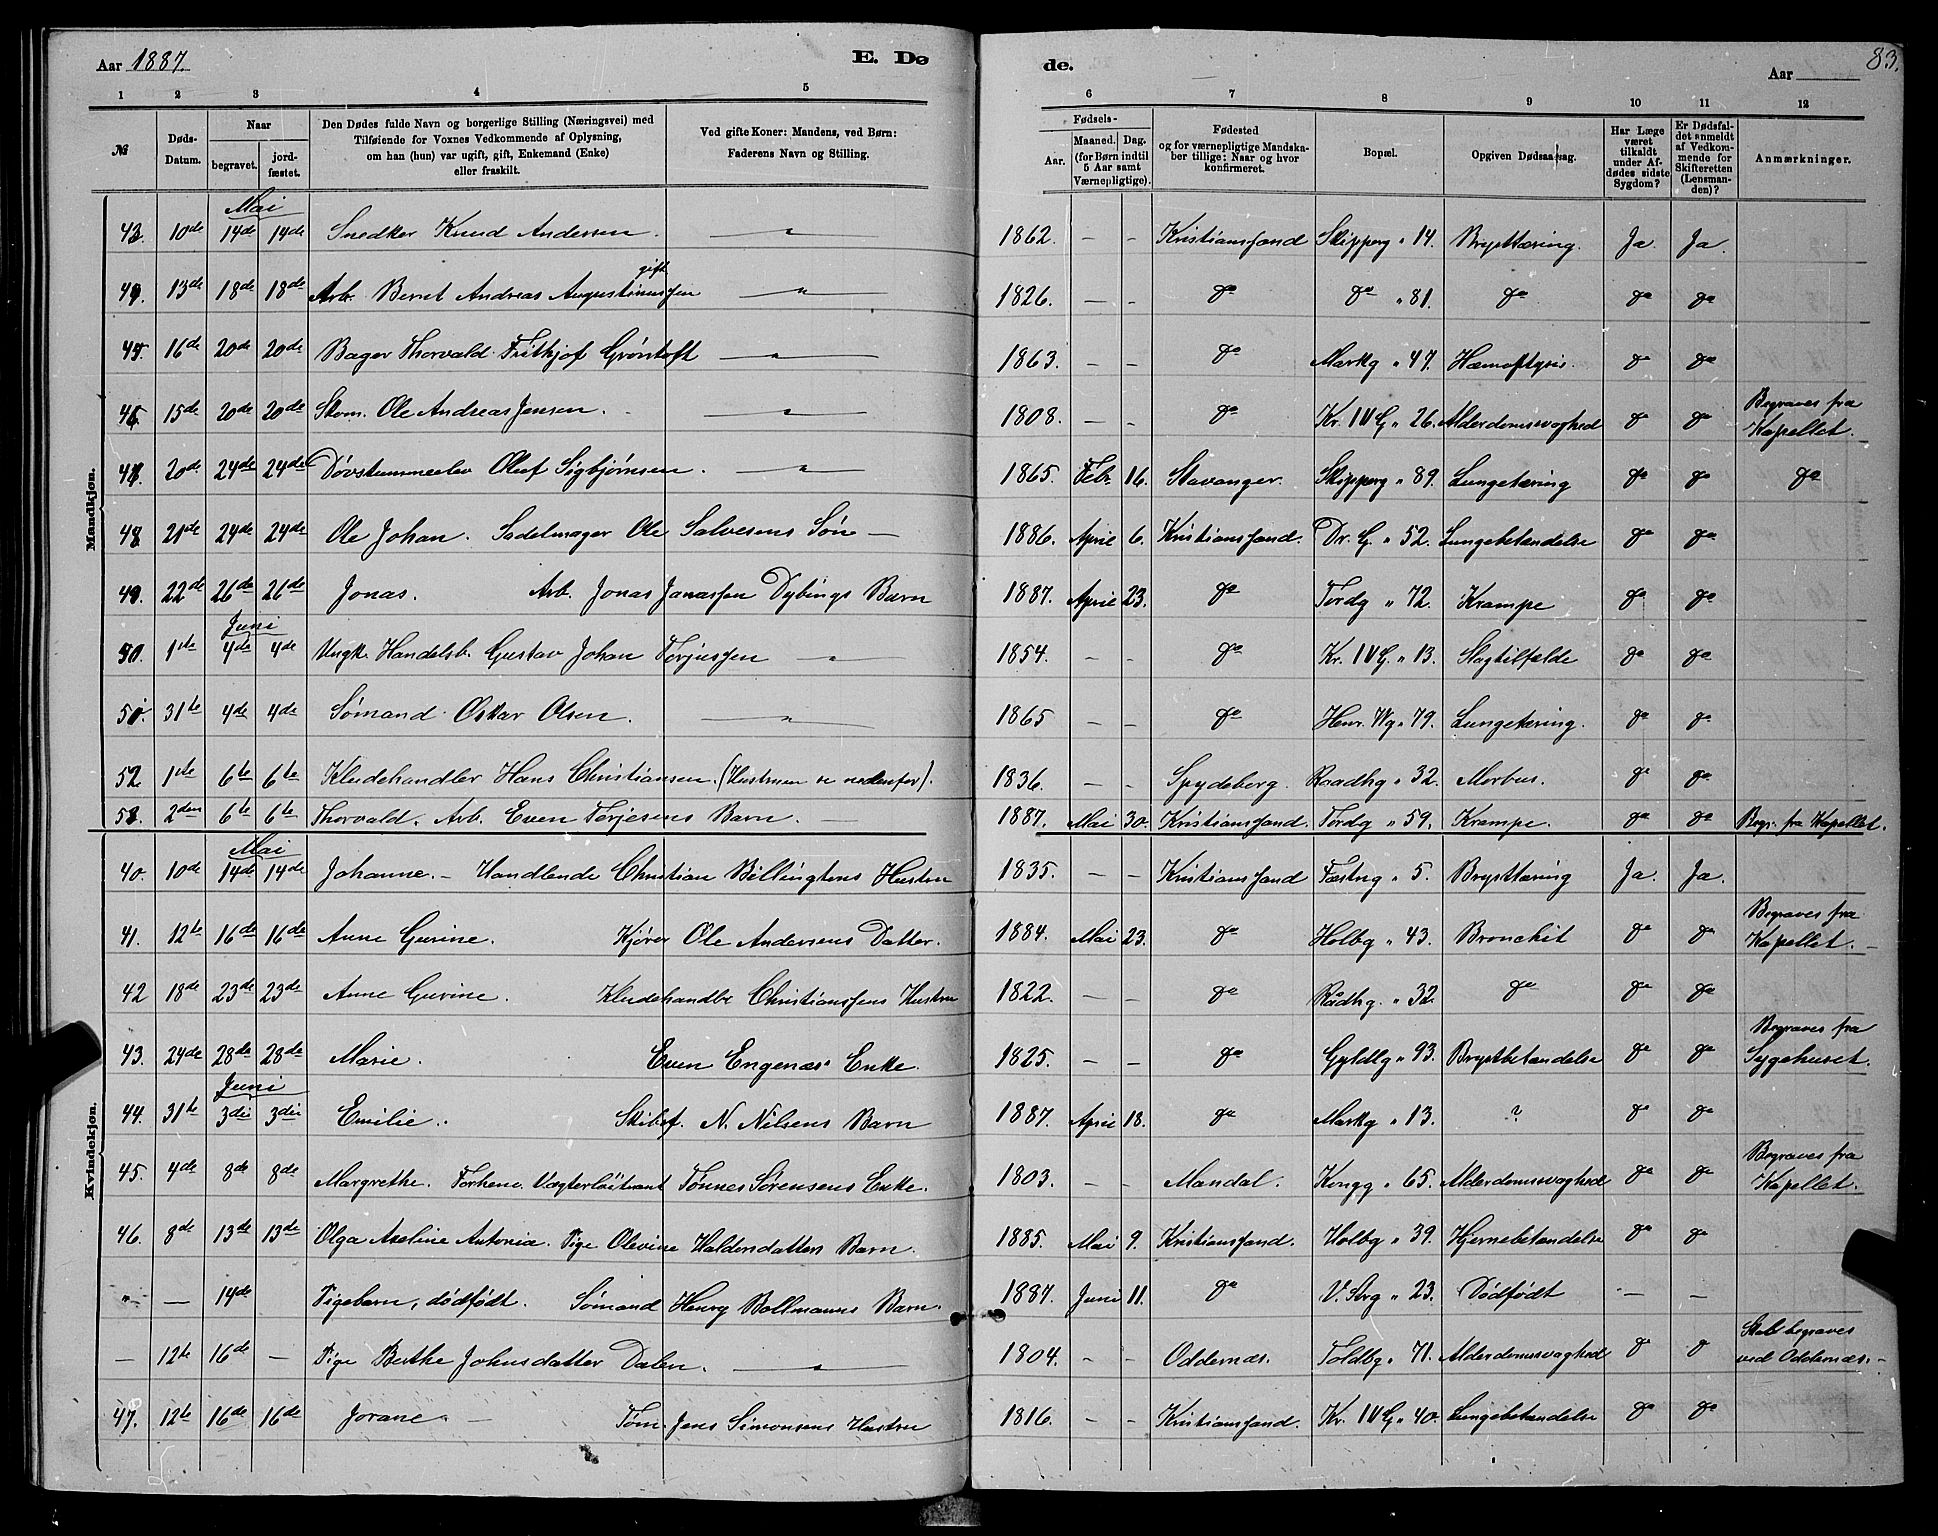 Aar 1887. E. Dø
de. Aar 83.
1 2 3 4 5
6 7 8 9 10 11 12
№
Døds-Datum.
Naar
begravet.
jord-fæstet.
Den Dødes fulde Navn og borgerlige Stilling (Næringsvei) med
Tilføiende for Voxnes Vedkommende af Oplysning,
om han (hun) var ugift, gift, Enkemand (Enke)
eller fraskilt.
Ved gifte Koner: Mandens, ved Børn:
Faderens Navn og Stilling.
Fødsels-
Aar.
Maaned. Dag.
(for Børn indtil
5 Aar samt
Værnepligtige).
Fødested
og for værnepligtige Mandska-
ber tillige: Naar og hvor
konfirmeret.
Bopæl.
Opgiven Dødsaarsag.
Har Læge
været
tilkaldt
under Af-
dødes sidste
Sygdom?
Er Dødsfal-
det anmeldt
af Vedkom-
mende for
Skifteretten
(Lensman-
den)?
Anmærkninger.
Mandkjøn.
Mai
43. 10de 14de 14de Snedker Knud Andersen. — " — 1862. — — Kristianssand Skipperg " 14. Brysttæring. Ja. Ja.
gift.
44. 13de 18de 18de Arb. Bernt Andreas Augustinussen — " — 1826. — — do do " 81. do do do
45. 16de 20de 20de Bager Thorvald Frithjof Grøntoft — " — 1863. — — do Markg " 47. Hæmoftysis. do do
46. 15de 20de 20de Skom. Ole Andreas Jensen. — " — 1808. — — do Kr. IV G. " 26. Alderdomssvaghed do do Begraves fra Kapellet.
47. 20de 24de 24de Døvstummeelev Oluf Sigbjørnsen. — " — 1865. Febr. 16. Stavanger. Skipperg " 89. Lungetæring do do do
48. 21de 24de 24de Ole Johan. Sadelmager Ole Salvesens Søn — 1886. April 6. Kristianssand. Dr. G. " 52. Lungebetændelse do do
49. 22de 26de 26de Jonas. Arb. Jonas Jonassen Dybings Barn 1887. April 23. do Tordg " 72. Krampe do do
Juni
50. 1ste 4de 4de Ungk. Handelsb. Gustav Johan Torjussen " 1854. — — do Kr. IV G. " 13. Slagtilfælde do do
51. 31te 4de 4de Sømand Oskar Olsen. — " — 1865 — — do Henr. Wg " 79. Lungetæring. do do
52 1ste 6te 6te Kludehandler Hans Christiansen. (Hustruen se nedenfor). 1836. — — Spydeberg. Raadhg " 32. Morbus. do do
53. 2den 6te 6te Thorvald. Arb. Even Torjesens Barn. — 1887. Mai 30. Kristianssand. Tordg " 59. Krampe. do do Begr. fra Kapellet.
Kvindekjøn.
Mai
40. 10de 14de 14de Johanne. — Handlende Christian Billingtons Hustru 1835. — — Kristianssand Fæstng " 5. Brysttæring Ja. Ja.
41. 12te 16de 16de Anne Gurine. Kjører Ole Andersens Datter. 1884. Mai 23. do Holbg " 43. Bronchit do do Begraves fra Kapellet. —
42 18de 23de 23de Anne Gurine. Kludehandler Christianssens Hustru 1822. — — do Raadhg. " 32. do do do
43. 24de 28de 28de Marie. Even Engenæs' Enke. 1825. — — do Gyldlg " 93. Brystbetændelse do do Begraves fra Sygehuset.
Juni
44. 31te 3die 3die Emilie. Skibsf. N. Nilsens Barn 1887. April 18. do Markg " 13. ? do do
45. 4de 8de 8de Margrethe. Forhenv. Vægterlöitnant Tønnes Sørensens Enke. 1803. — — Mandal. Kongg " 65. Alderdomssvaghed do do Begraves fra Kapellet.
46. 8de 13de 13de Olga Axeline Antonia. Pige Olevine Haldorsdatters Barn. 1885. Mai 9. Kristianssand. Holbg " 39. Hjernebetændelse do do
" — 14de Pigebarn, dødfödt. Sømand Henry Bollmanns Barn. 1887. Juni 11. do V. Strg " 23. Dödfödt — —
— 12te 16de — Pige Berthe Johnsdatter Dalen. — " — 1804. — — Oddernæs. Toldbg " 71. Alderdomssvaghed do do Skal begraves ved Oddernæs. —
47. 12te 16de 16de Jorane. — Töm. Jens Simonsens Hustru 1816. — — Kristianssand. Kr. IV G " 40. Lungebetændelse do do